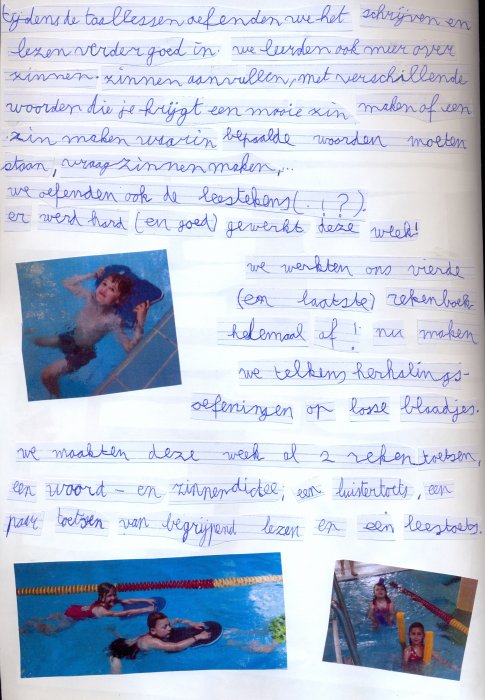 tijdens de taallessen oefenden we het schrijven en
lezen verder goed in. we leerden ook meer over
zinnen. zinnen aanvullen, met verschillende
woorden die je krijgt een mooie zin maken of een
zin maken waarin bepaalde woorden moeten
staan, vraagzinnen maken,...
we oefenden ook de leestekens (. ! ?).
er werd hard (en goed) gewerkt deze week!
we werkten ons vierde
(en laatste) rekenboek
helemaal af! nu maken
we telkens herhalings-
oefeningen op losse blaadjes.
we maakten deze week al 2 rekentoetsen,
een woord- en zinnendictee, een luistertoets, een
paar toetsen van begrijpend lezen en een leestoets.